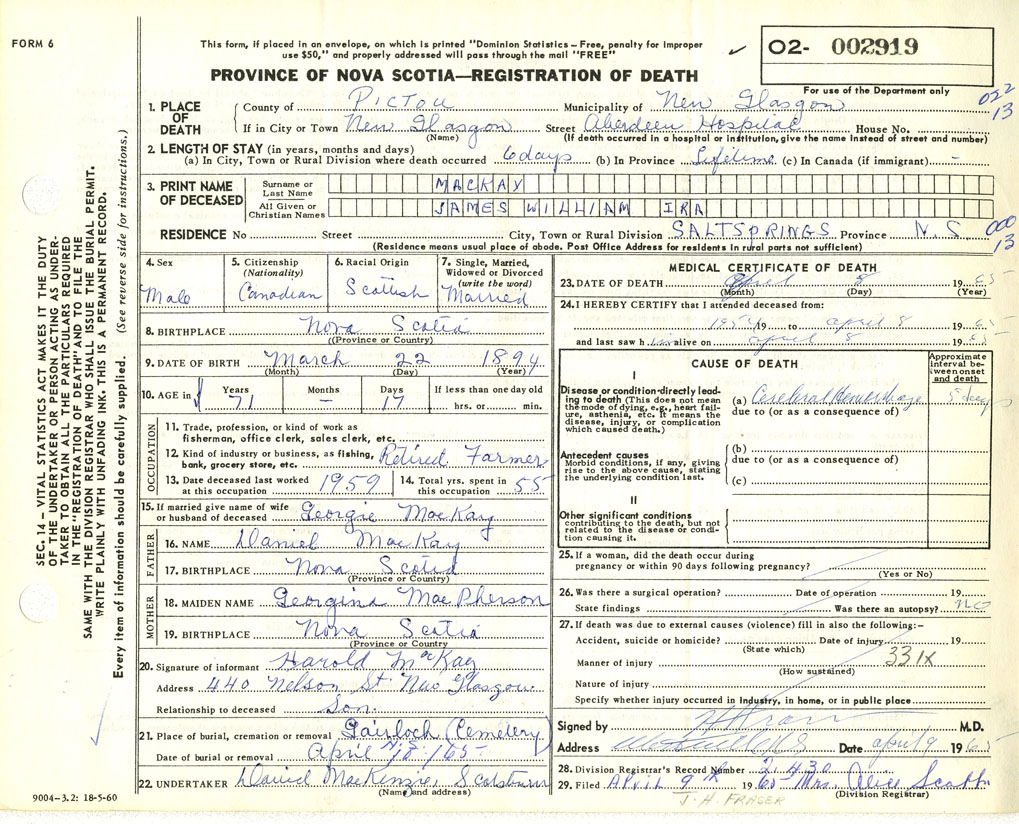 FORM 6
This form, if placed in an envelope, on which is printed "Dominion Statistics – Free, penalty for improper
use $50," and properly addressed will pass through the mail "FREE"
O2- 002919
PROVINCE OF NOVA SCOTIA—REGISTRATION OF DEATH
For use of the Department only
022
13
1. PLACE OF DEATH
County of Pictou Municipality of New Glasgow
If in City or Town New Glasgow Street Aberdeen Hospital House No.
(Name) (If death occurred in a hospital or institution, give the name instead of street and number)
2. LENGTH OF STAY (in years, months and days)
(a) In City, Town or Rural Division where death occurred 6 days (b) In Province Lifetime (c) In Canada (if immigrant) -
3. PRINT NAME OF DECEASED
Surname or Last Name MACKAY
All Given or Christian Names JAMES WILLIAM IRA
RESIDENCE No Street City, Town or Rural Division SALTSPRINGS Province N.S
000
13
(Residence means usual place of abode. Post Office Address for residents in rural parts not sufficient)
4. Sex
Male
5. Citizenship
(Nationality)
Canadian
6. Racial Origin
Scottish
7. Single, Married, Widowed or Divorced
(write the word)
Married
8. BIRTHPLACE Nova Scotia
((Province or Country)
9. DATE OF BIRTH March 22 1894
(Month) (Day) (Year)
10. AGE in
Years 71
Months –
Days 17
If less than one day old
hrs. or min.
OCCUPATION
11. Trade, profession, or kind of work as
fisherman, office clerk, sales clerk, etc.
12. Kind of industry or business, as fishing,
bank, grocery store, etc. Retired Farmer
13. Date deceased last worked
at this occupation 1959
14. Total yrs. spent in
this occupation 55
15. If married give name of wife
or husband of deceased Georgie MacKay
FATHER
16. NAME Daniel MacKay
17. BIRTHPLACE Nova Scotia
(Province or Country)
MOTHER
18. MAIDEN NAME Georgina MacPherson
19. BIRTHPLACE Nova Scotia
(Province or Country
20. Signature of informant Harold MacKay
Address 440 Nelson St New Glasgow
Relationship to deceased Son.
21. Place of burial, cremation or removal Gairloch (Cemetery)
Date of burial or removal April
22. UNDERTAKER Daniel MacKenzie,
(Name and address)
9004-3.2: 18-5-60
MEDICAL CERTIFICATE OF DEATH
23. DATE OF DEATH April 8 19 65
(Month) (Day) (Year)
24. I HEREBY CERTIFY that I attended deceased from:
19 to april 8 19
and last saw h im alive on april 8 19
CAUSE OF DEATH
Approximate interval between onset and death
I
Disease or condition directly leading to death (This does not mean the mode of dying, e.g., heart failure, asthenia, etc. It means the disease, injury, or complication which caused death.)
(a) Cerebral Hemorrhage days
due to (or as a consequence of)
Antecedent causes
Morbid conditions, if any, giving rise to the above cause, stating the underlying condition last.
(b)
due to (or as a consequence of)
(c)
II
Other significant conditions
contributing to the death, but not related to the disease or condition causing it.
25. If a woman, did the death occur during
pregnancy or within 90 days following pregnancy?
(Yes or No)
26. Was there a surgical operation? Date of operation 19
State findings Was there an autopsy? no
27. If death was due to external causes (violence) fill in also the following:-
Accident, suicide or homicide? Date of injury 19
(State which)
331X
Manner of injury
(How sustained)
Nature of injury
Specify whether injury occurred in Industry, in home, or in public place
Signed by M.D.
Address Date april 9 19 65
28. Division Registrar's Record Number 2,430
29. Filed April 9th 1965 Mrs. Alice
(Division Registrar)
J. H. FRASER
SEC. 14 – VITAL STATISTICS ACT MAKES IT THE DUTY
OF THE UNDERTAKER OR PERSON ACTING AS UNDER-
TAKER TO OBTAIN ALL THE PARTICULARS REQUIRED
IN THE "REGISTRATION OF DEATH" AND TO FILE THE
SAME WITH THE DIVISION REGISTRAR WHO SHALL ISSUE THE BURIAL PERMIT.
WRITE PLAINLY WITH UNFADING INK. THIS IS A PERMANENT RECORD.
Every item of information should be carefully supplied. (See reverse side for instructions.)